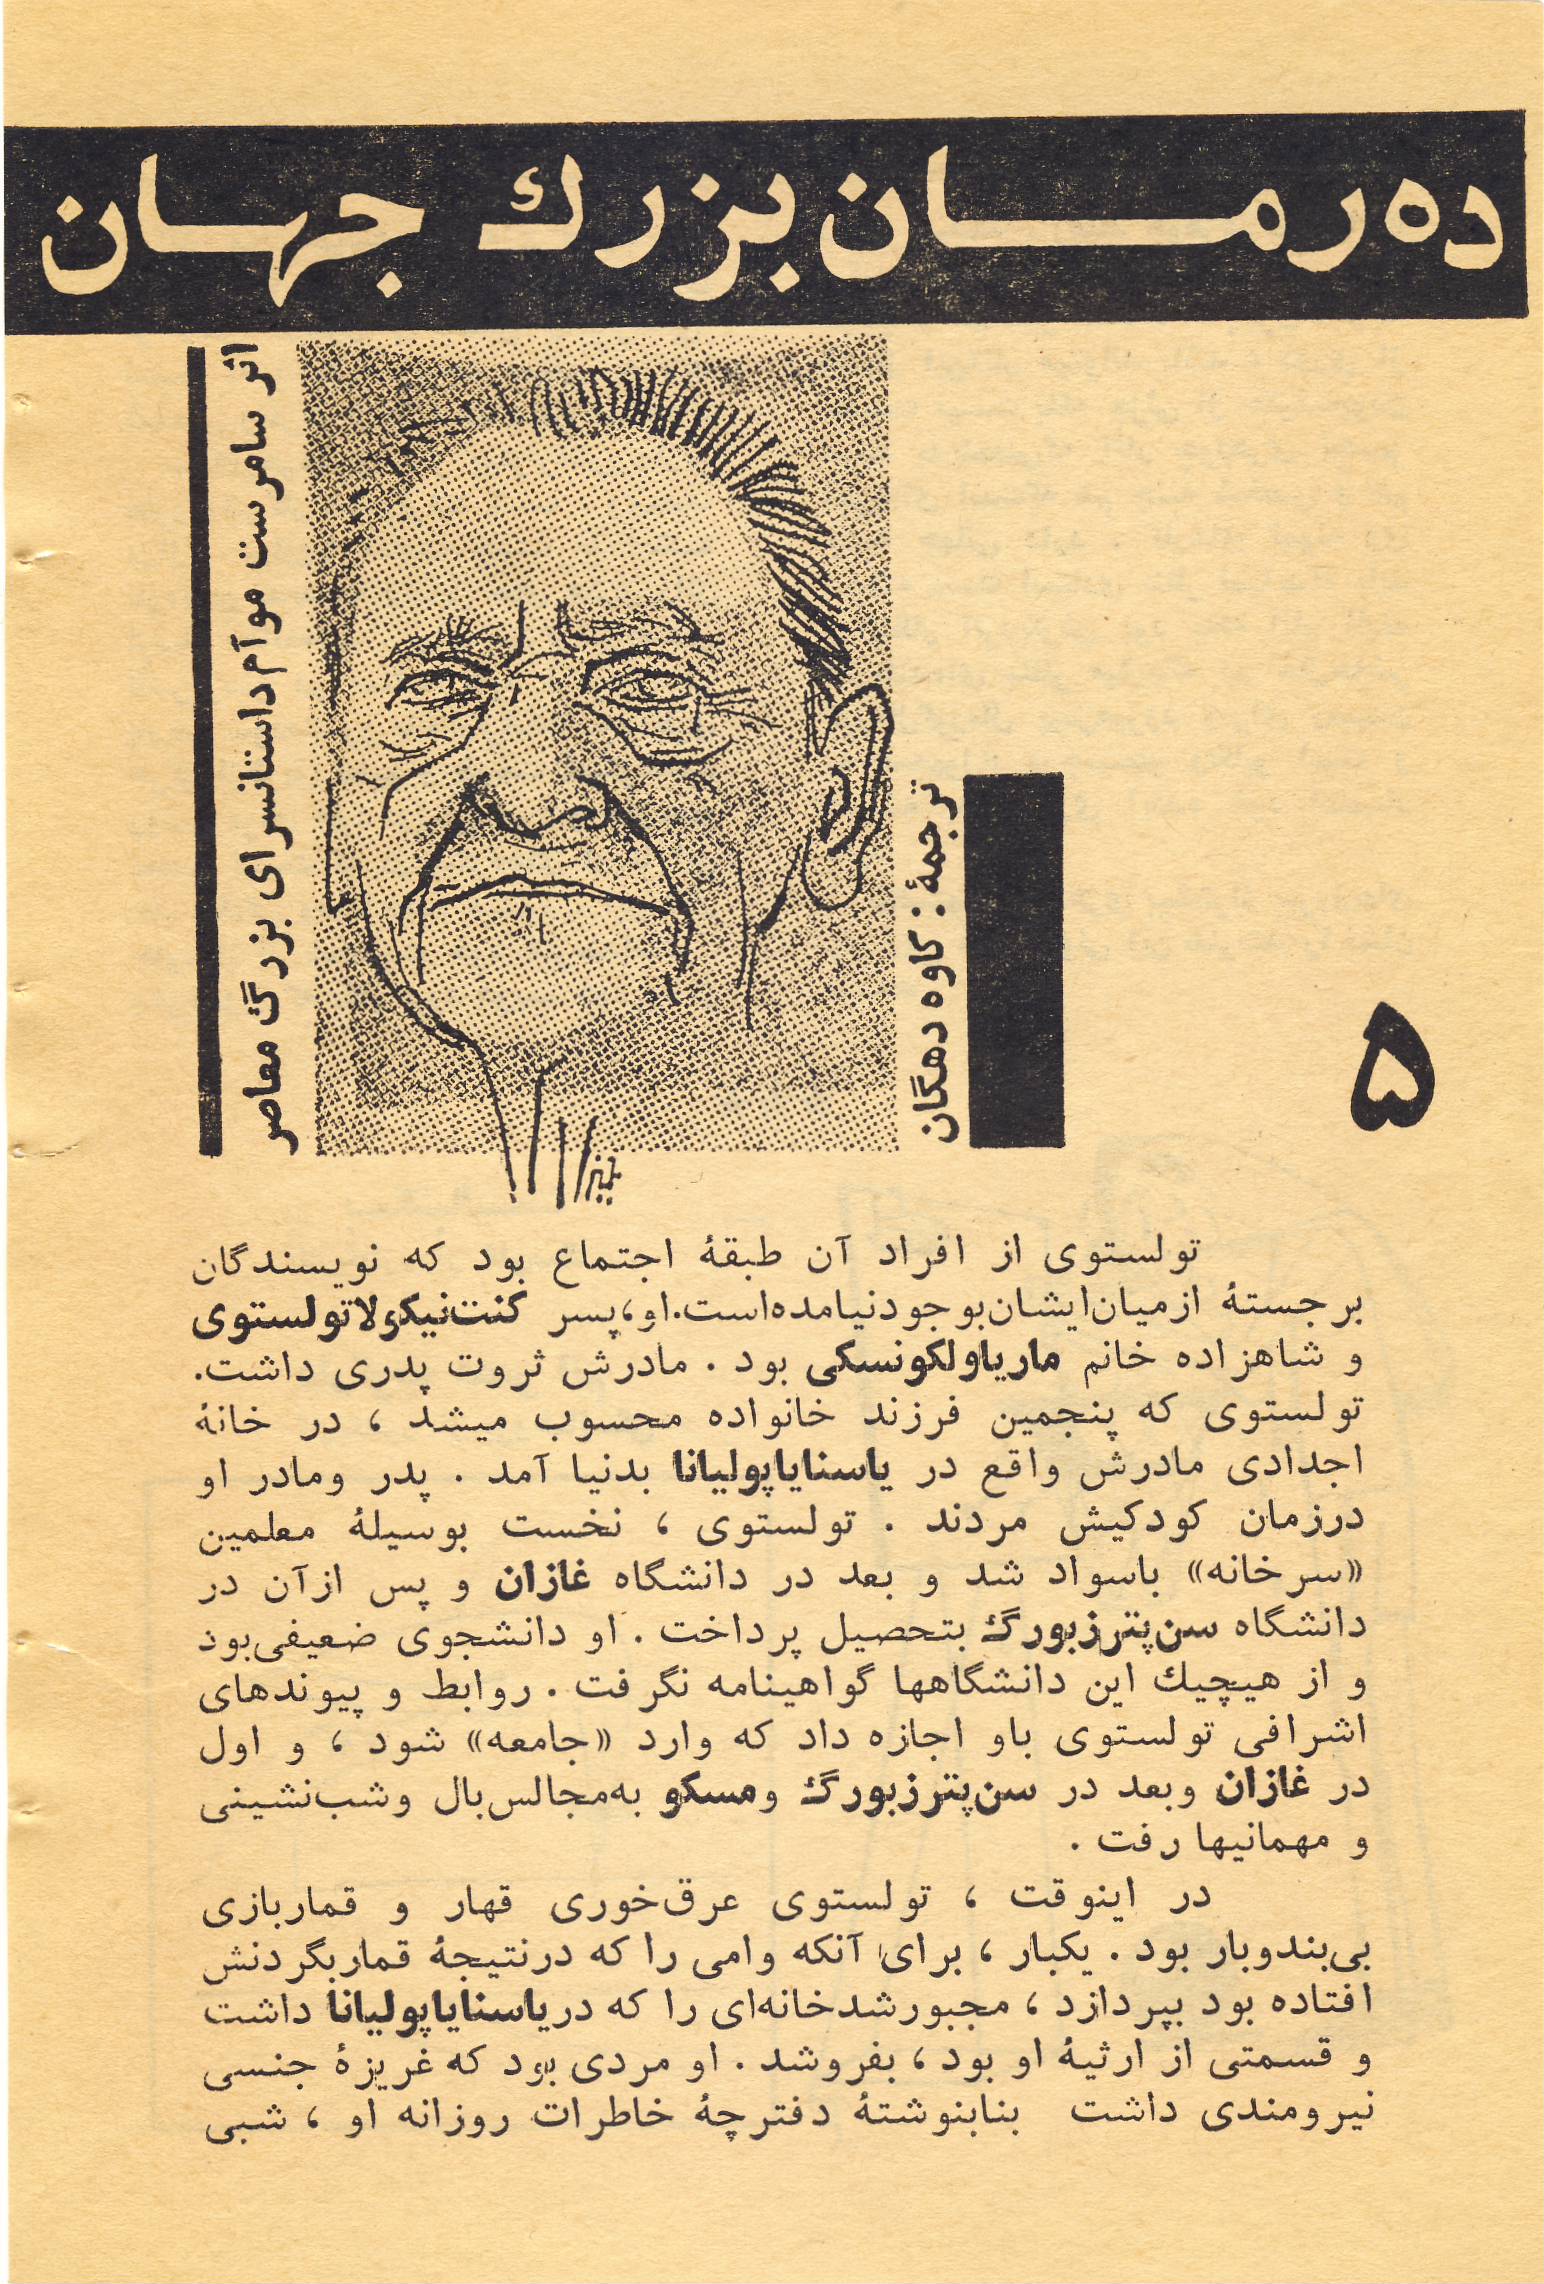 ده رمان بزرك جهان
اثر سامرست موآم داستانسرای بزرگ معاصر
ترجمهٔ : کاوه دهگان
۵
تولستوی از افراد آن طبقهٔ اجتماع بود که نویسندگان
برجستهٔ ازمیان‌ایشان‌بوجودنیامده‌است.او،پسر کنت‌نیکولاتولستوی
و شاهزاده خانم ماریاولکونسکی بود . مادرش ثروت پدری داشت.
تولستوی که پنجمین فرزند خانواده محسوب میشد ، در خانهٔ
اجدادی مادرش واقع در یاسنایاپولیانا بدنیا آمد . پدر ومادر او
درزمان کودکیش مردند . تولستوی ، نخست بوسیلهٔ معلمین
«سرخانه» باسواد شد و بعد در دانشگاه غازان و پس ازآن در
دانشگاه سن‌پترزبورگ بتحصیل پرداخت . او دانشجوی ضعیفی‌بود
و از هیچیك این دانشگاهها گواهینامه نگرفت . روابط و پیوندهای
اشرافی تولستوی باو اجازه داد که وارد «جامعه» شود ، و اول
در غازان وبعد در سن‌پترزبورگ ومسکو به‌مجالس‌بال وشب‌نشینی
و مهمانیها رفت .
در اینوقت ، تولستوی عرق‌خوری قهار و قماربازی
بی‌بندوبار بود . یکبار ، برای آنکه وامی را که درنتیجهٔ قماربگردنش
افتاده بود بپردازد ، مجبورشدخانه‌ای را که دریاسنایاپولیانا داشت
و قسمتی از ارثیهٔ او بود ، بفروشد . او مردی بود که غریزهٔ جنسی
نیرومندی داشت بنابنوشتهٔ دفترچهٔ خاطرات روزانه او ، شبی